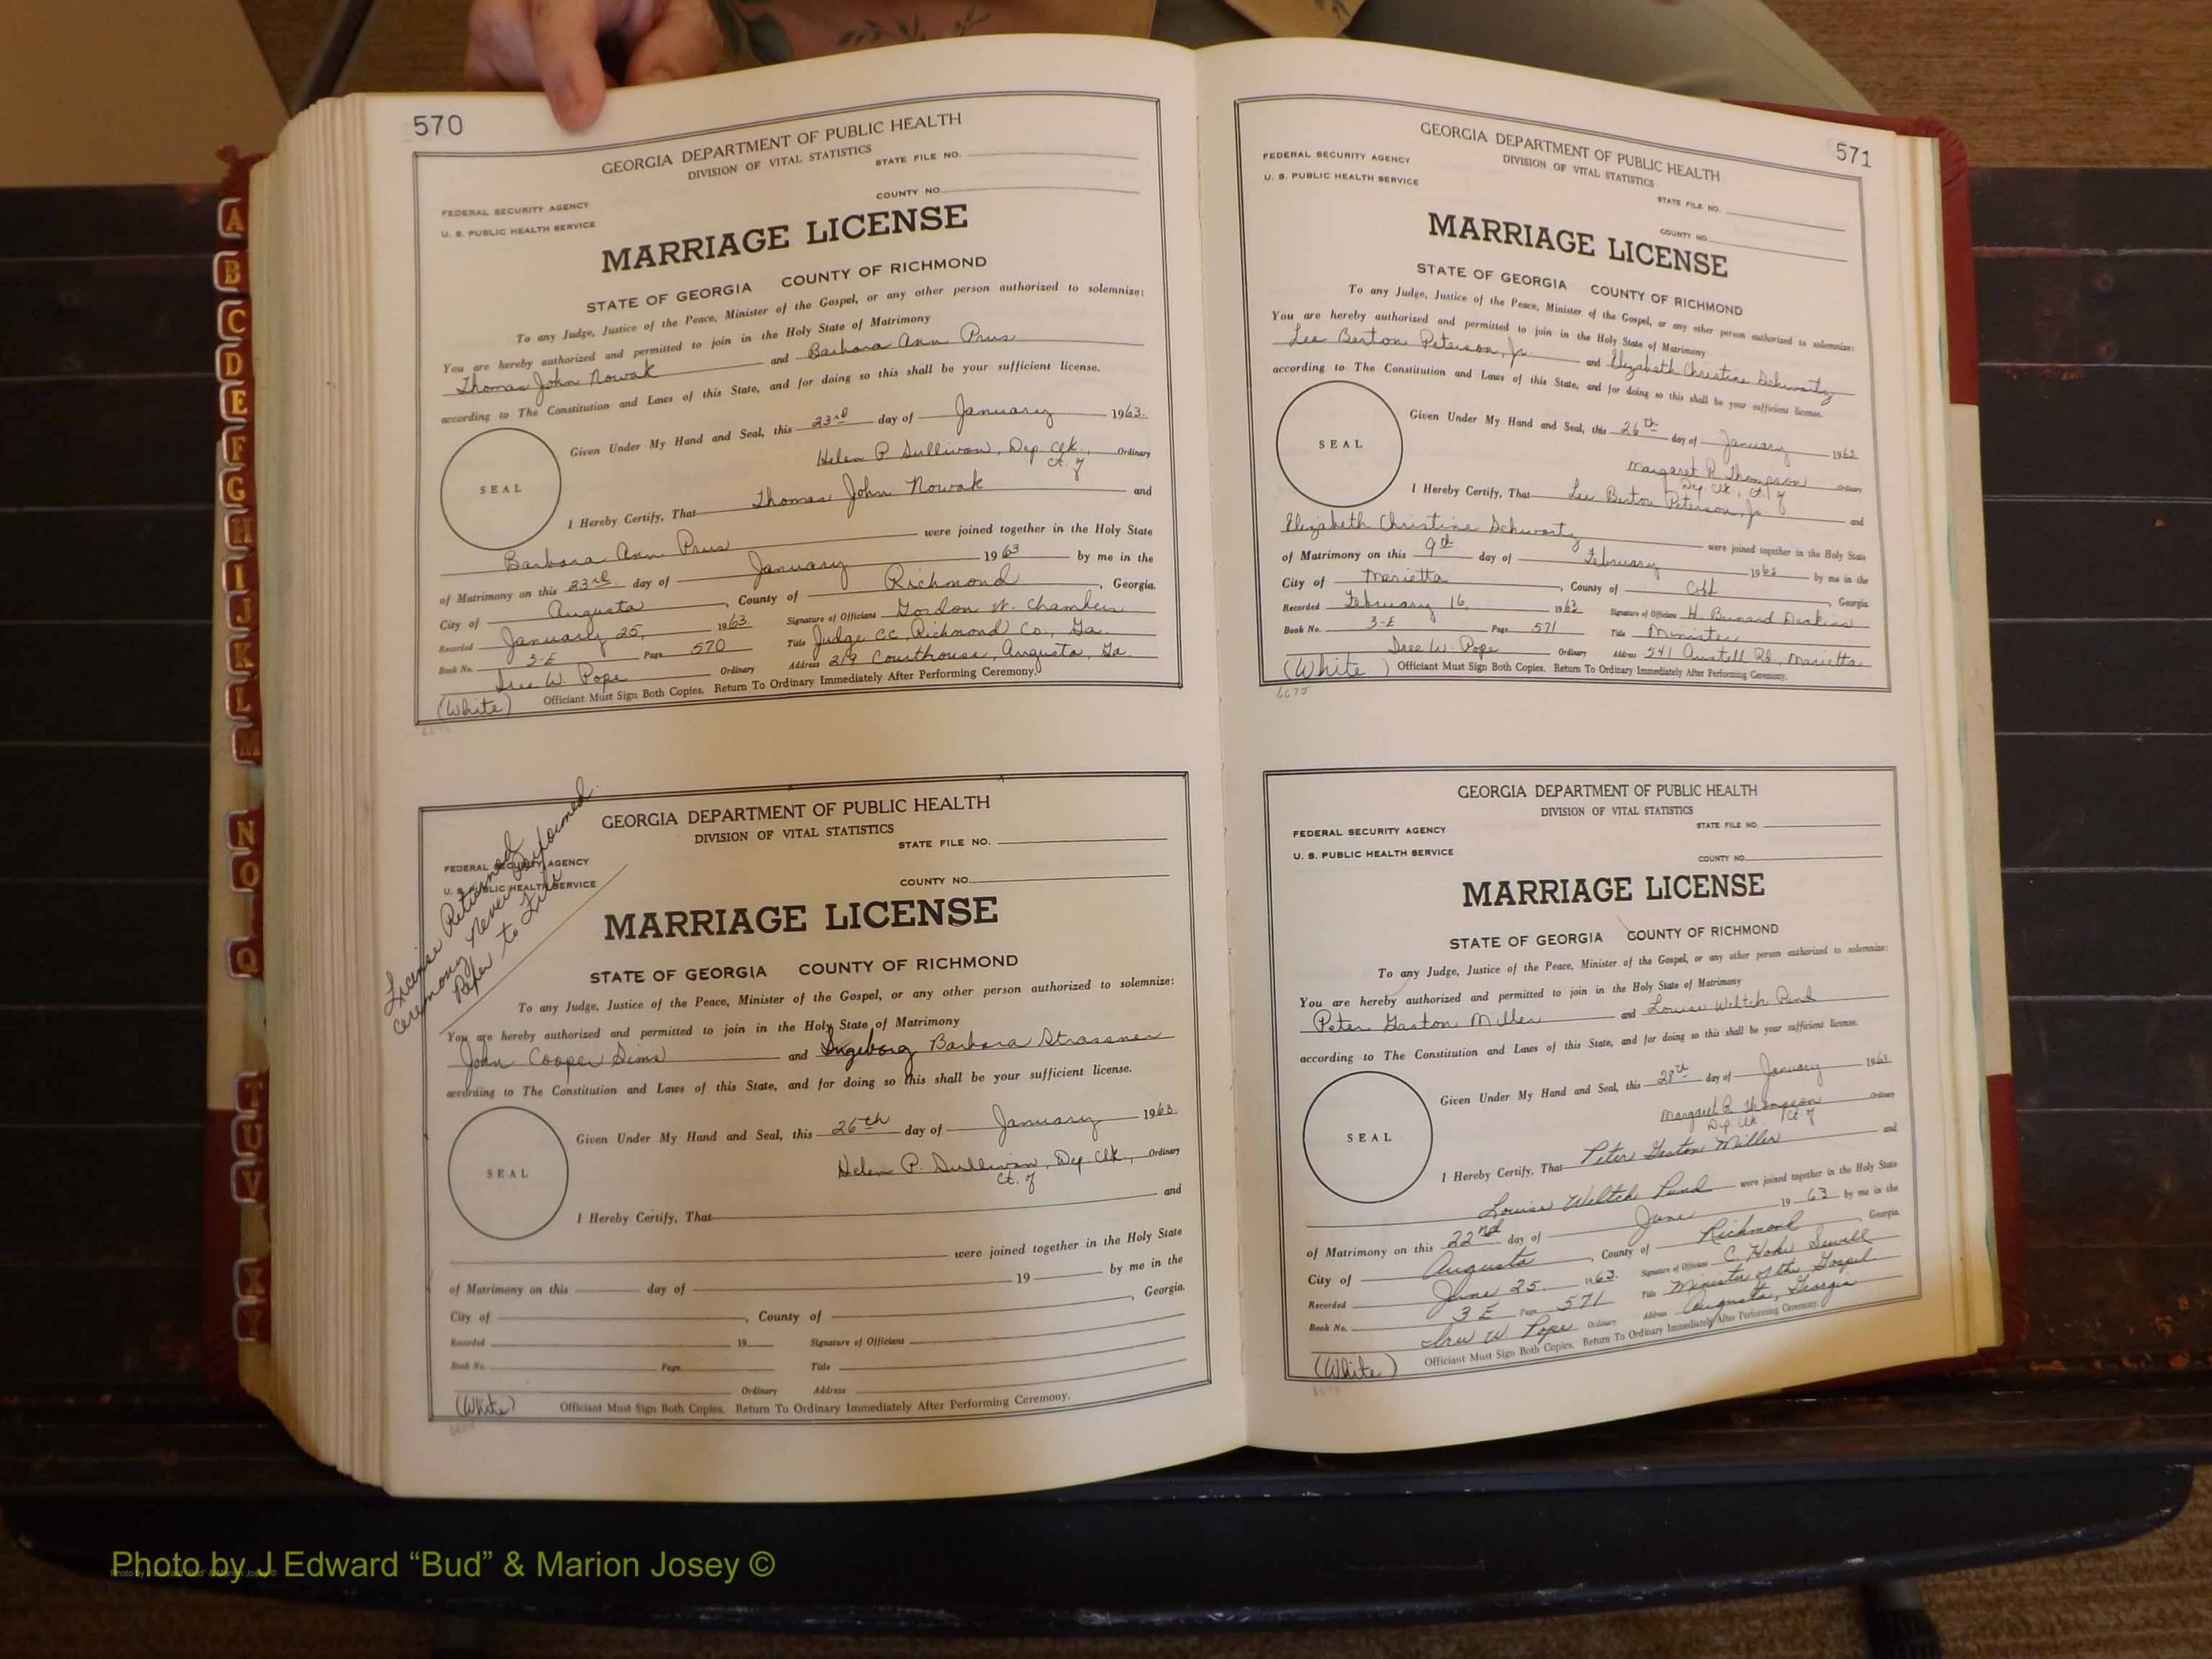 570
GEORGIA DEPARTMENT OF PUBLIC HEALTH
DIVISION OF VITAL STATISTICS
STATE FILE NO.
COUNTY NO.
FEDERAL SECURITY AGENCY
U. S. PUBLIC HEALTH SERVICE
MARRIAGE LICENSE
STATE OF GEORGIA COUNTY OF RICHMOND
To any Judge, Justice of the Peace, Minister of the Gospel, or any other person authorized to solemnize:
You are hereby authorized and permitted to join in the Holy State of Matrimony
Thomas John Nowak and Barbara Ann Prus
according to The Constitution and Laws of this State, and for doing so this shall be your sufficient license.
Given Under My Hand and Seal, this 23rd day of January 1963.
SEAL
Helen P Sullivan, Dep. Clk., Ordinary
Ct. of
I Hereby Certify, That Thomas John Nowak and
Barbara Ann Prus were joined together in the Holy State
of Matrimony on this 23rd day of January 1963 by me in the
City of Augusta, County of Richmond, Georgia.
Recorded January 25, 1963. Signature of Officiant Gordon W. Chambers
Book No. 3-E Page 570 Title Judge CC, Richmond Co., Ga.
W. Pope Ordinary Address 219 Courthouse, Augusta, Ga.
(White) Officiant Must Sign Both Copies. Return To Ordinary Immediately After Performing Ceremony.
License Returned
ceremony never performed.
Refer to File
GEORGIA DEPARTMENT OF PUBLIC HEALTH
DIVISION OF VITAL STATISTICS
STATE FILE NO.
FEDERAL SECURITY AGENCY
U. S. PUBLIC HEALTH SERVICE
COUNTY NO.
MARRIAGE LICENSE
STATE OF GEORGIA COUNTY OF RICHMOND
To any Judge, Justice of the Peace, Minister of the Gospel, or any other person authorized to solemnize:
You are hereby authorized and permitted to join in the Holy State of Matrimony
John Cooper Sims and Ingeborg Barbara Strassner
according to The Constitution and Laws of this State, and for doing so this shall be your sufficient license.
Given Under My Hand and Seal, this 26th day of January 1963.
SEAL
Helen P. Sullivan, Dep. Clk., Ordinary
Ct. of
I Hereby Certify, That and
were joined together in the Holy State
of Matrimony on this day of 19 by me in the
City of , County of , Georgia.
Recorded 19 Signature of Officiant
Book No. Page Title
Ordinary Address
(White) Officiant Must Sign Both Copies. Return To Ordinary Immediately After Performing Ceremony.
571
GEORGIA DEPARTMENT OF PUBLIC HEALTH
DIVISION OF VITAL STATISTICS
FEDERAL SECURITY AGENCY
U. S. PUBLIC HEALTH SERVICE
STATE FILE NO.
COUNTY NO.
MARRIAGE LICENSE
STATE OF GEORGIA COUNTY OF RICHMOND
To any Judge, Justice of the Peace, Minister of the Gospel, or any other person authorized to solemnize:
You are hereby authorized and permitted to join in the Holy State of Matrimony
Lee Berton Peterson, Jr. and Elizabeth Christine Schwartz
according to The Constitution and Laws of this State, and for doing so this shall be your sufficient license.
Given Under My Hand and Seal, this 26th day of January 1963
SEAL
Margaret R Thompson Ordinary
Dep. Clk., Ct. of
I Hereby Certify, That Lee Berton Peterson, Jr. and
Elizabeth Christine Schwartz were joined together in the Holy State
of Matrimony on this 9th day of February 1963 by me in the
City of Marietta, County of Cobb, Georgia
Recorded February 16, 1963 Signature of Officiant H. Bernard
Book No. 3-E Page 571 Title Minister
W. Pope Ordinary Address 541 Austell Rd., Marietta
(White) Officiant Must Sign Both Copies. Return To Ordinary Immediately After Performing Ceremony.
6675
GEORGIA DEPARTMENT OF PUBLIC HEALTH
DIVISION OF VITAL STATISTICS
FEDERAL SECURITY AGENCY
U. S. PUBLIC HEALTH SERVICE
STATE FILE NO.
COUNTY NO.
MARRIAGE LICENSE
STATE OF GEORGIA COUNTY OF RICHMOND
To any Judge, Justice of the Peace, Minister of the Gospel, or any other person authorized to solemnize:
You are hereby authorized and permitted to join in the Holy State of Matrimony
Peter Gaston Miller and Louise Weltch Pund
according to The Constitution and Laws of this State, and for doing so this shall be your sufficient license.
Given Under My Hand and Seal, this 28th day of January 1963
SEAL
Margaret R Thompson Ordinary
Dep. Clk. Ct. of
I Hereby Certify, That Peter Gaston Miller and
Louise Weltch Pund were joined together in the Holy State
of Matrimony on this 22nd day of June 1963 by me in the
City of Augusta, County of Richmond, Georgia
Recorded June 25 1963. Signature of Officiant C. Hoke Sewell
Book No. 3 E Page 571 Title Minister of the Gospel
W. Pope Ordinary Address Augusta, Georgia
(White) Officiant Must Sign Both Copies. Return To Ordinary Immediately After Performing Ceremony.
A
B
C
D
E
F
G
H
I
J
K
L
M
N
O
Q
T
U
V
X
Y
Photo by J Edward “Bud” & Marion Josey ©
Photo by J Edward “Bud” & Marion Josey ©